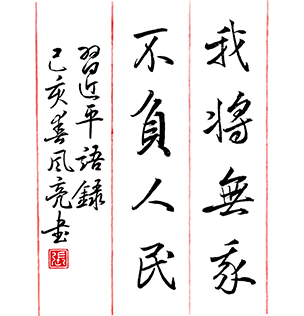 我將無我
不負人民
習近平語錄
己亥春風亮書
張